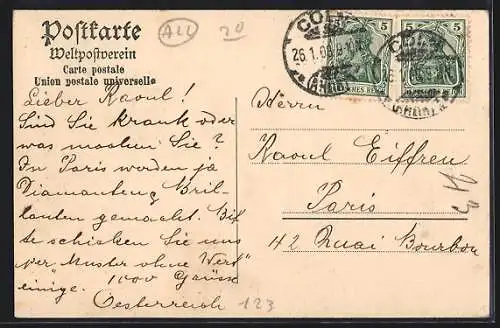 Postkarte
Weltpostverein
Carte postale
Union postale universelle
ALL 20
CÖLN
26.1.0
5 5
CHES REICH
(RHEIN)
Lieber Raoul!
Sind Sie krank oder
was machen Sie?
In Paris werden ja
Diamanten, Bril-
lanten gemacht. Bit-
te schicken Sie uns
per "Muster ohne Wert"
einige. 1000 Grüsse
Oesterreich
123
Herrn
Raoul Eiffren
Paris
42 Quai Bourbon